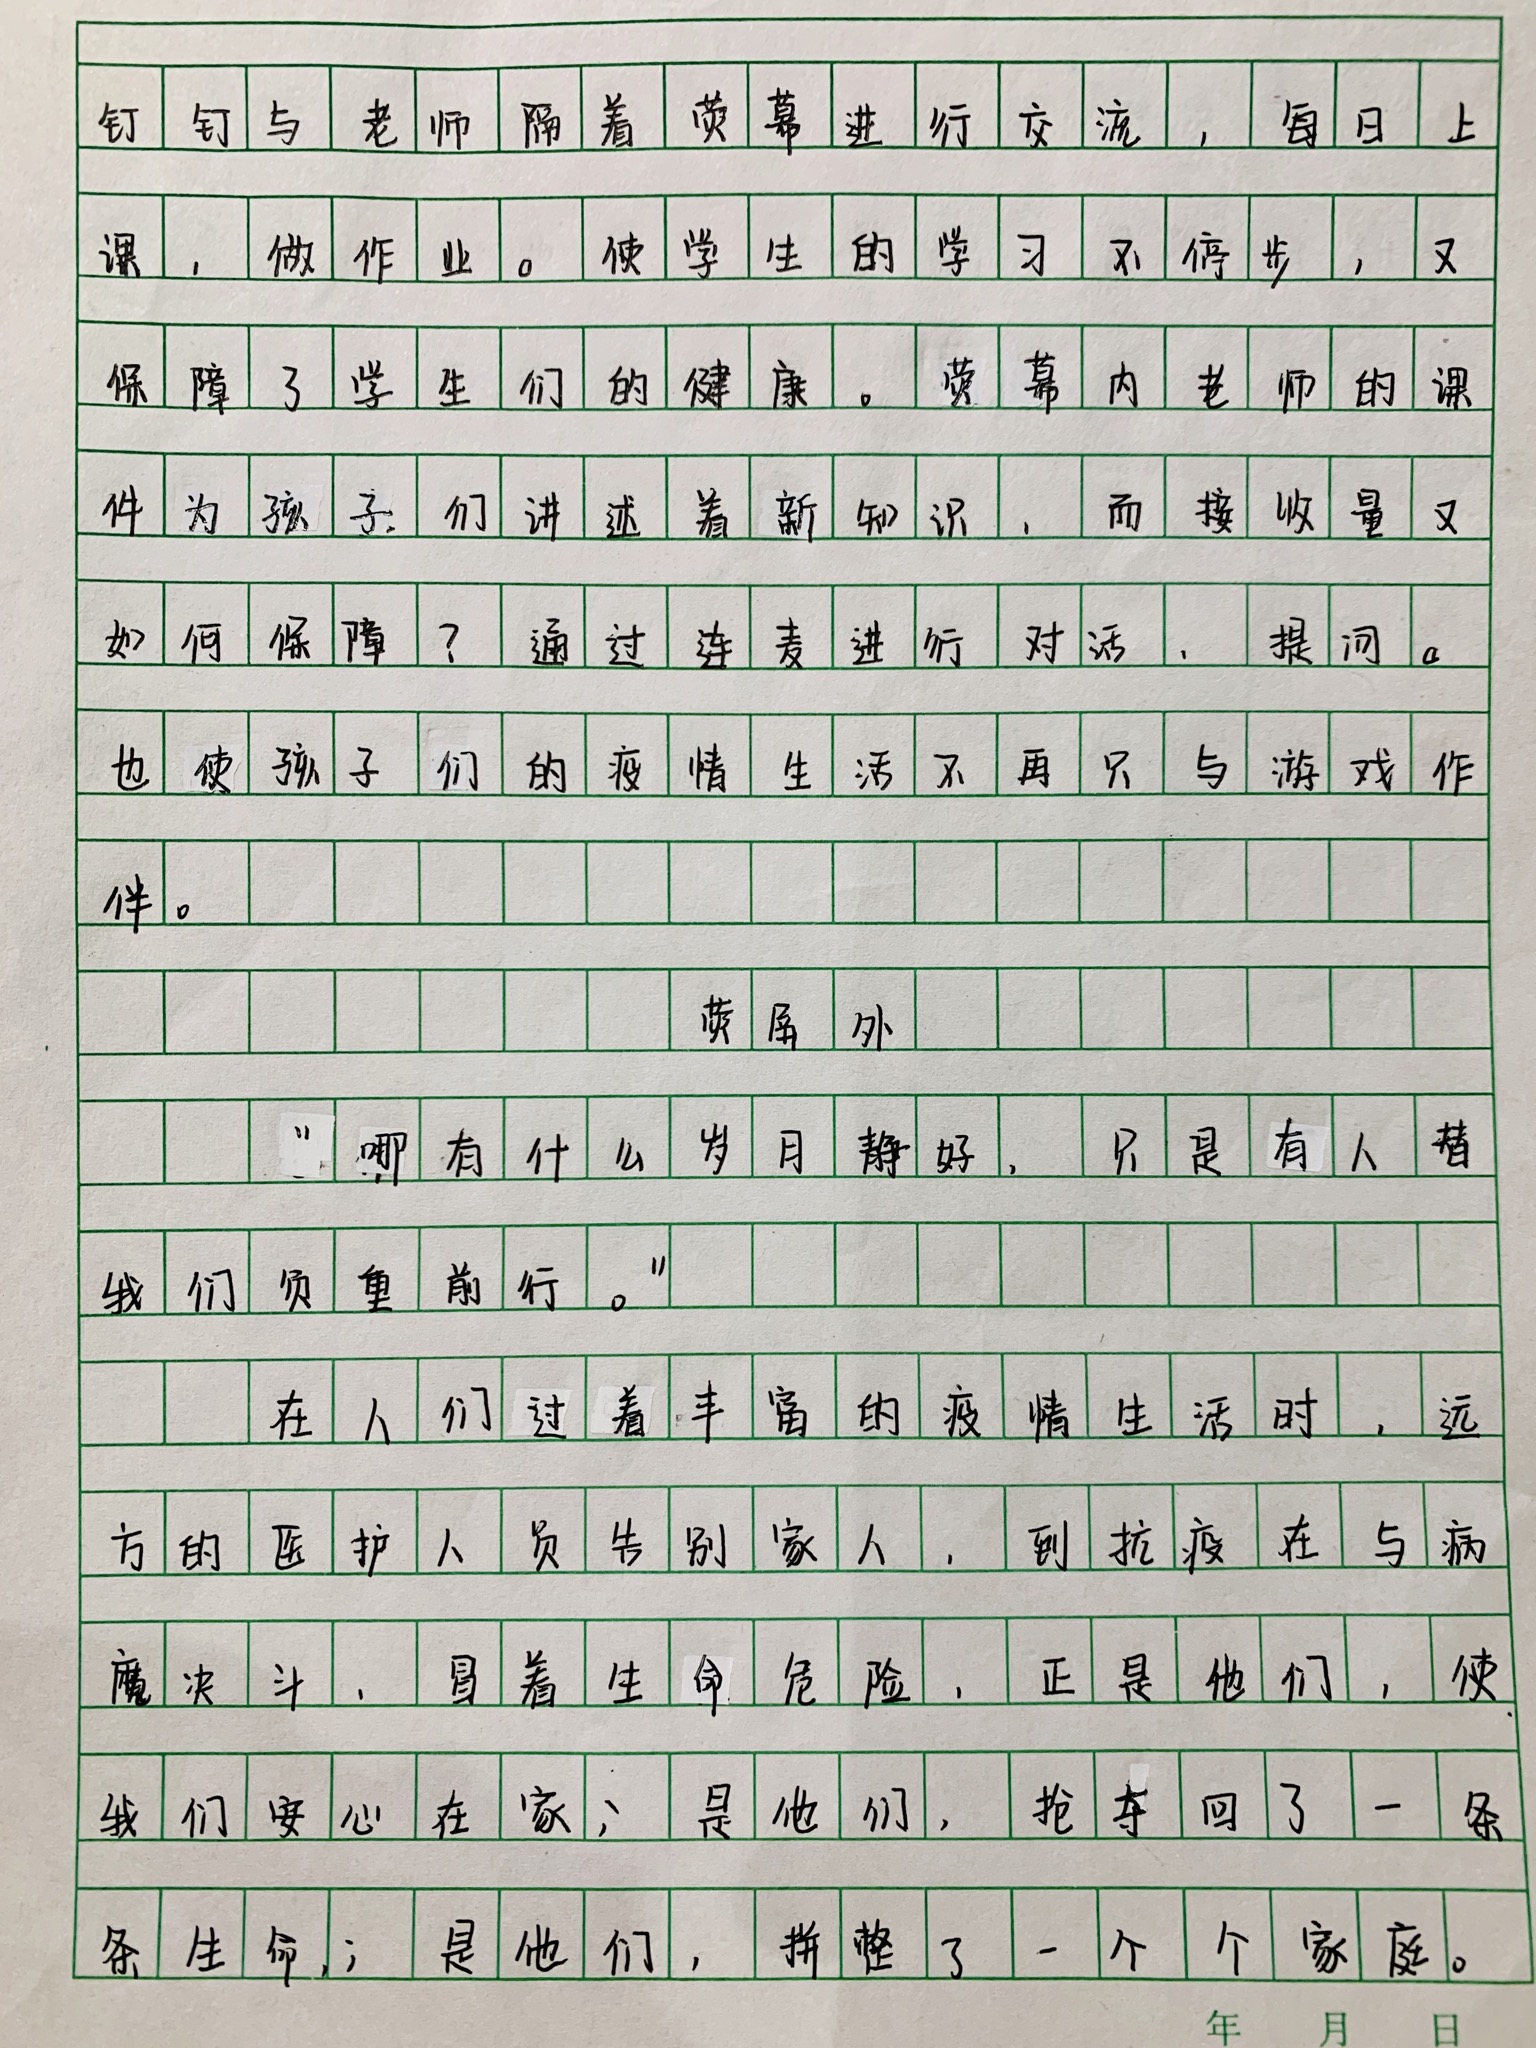 钉钉与老师隔着荧幕进行交流，每日上
课，做作业。使学生的学习不停步，又
保障了学生们的健康。荧幕内老师的课
件为孩子们讲述着新知识，而接收量又
如何保障？通过连麦进行对话，提问。
也使孩子们的疫情生活不再只与游戏作
伴。
荧屏外
“哪有什么岁月静好，只是有人替
我们负重前行。”
在人们过着丰富的疫情生活时，远
方的医护人员告别家人，到抗疫在与病
魔决斗，冒着生命危险，正是他们，使
我们安心在家；是他们，抢夺回了一条
条生命；是他们，拼整了一个个家庭。
年 月 日